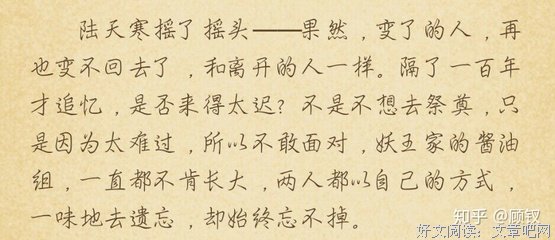 陆天寒摇了摇头——果然，变了的人，再
也变不回去了，和离开的人一样。隔了一百年
才追忆，是否来得太迟？不是不想去祭奠，只
是因为太难过，所以不敢面对，妖王家的酱油
组，一直都不肯长大，两人都以自己的方式，
一味地去遗忘，却始终忘不掉。
知乎 @顾钗
好文阅读：文章吧网